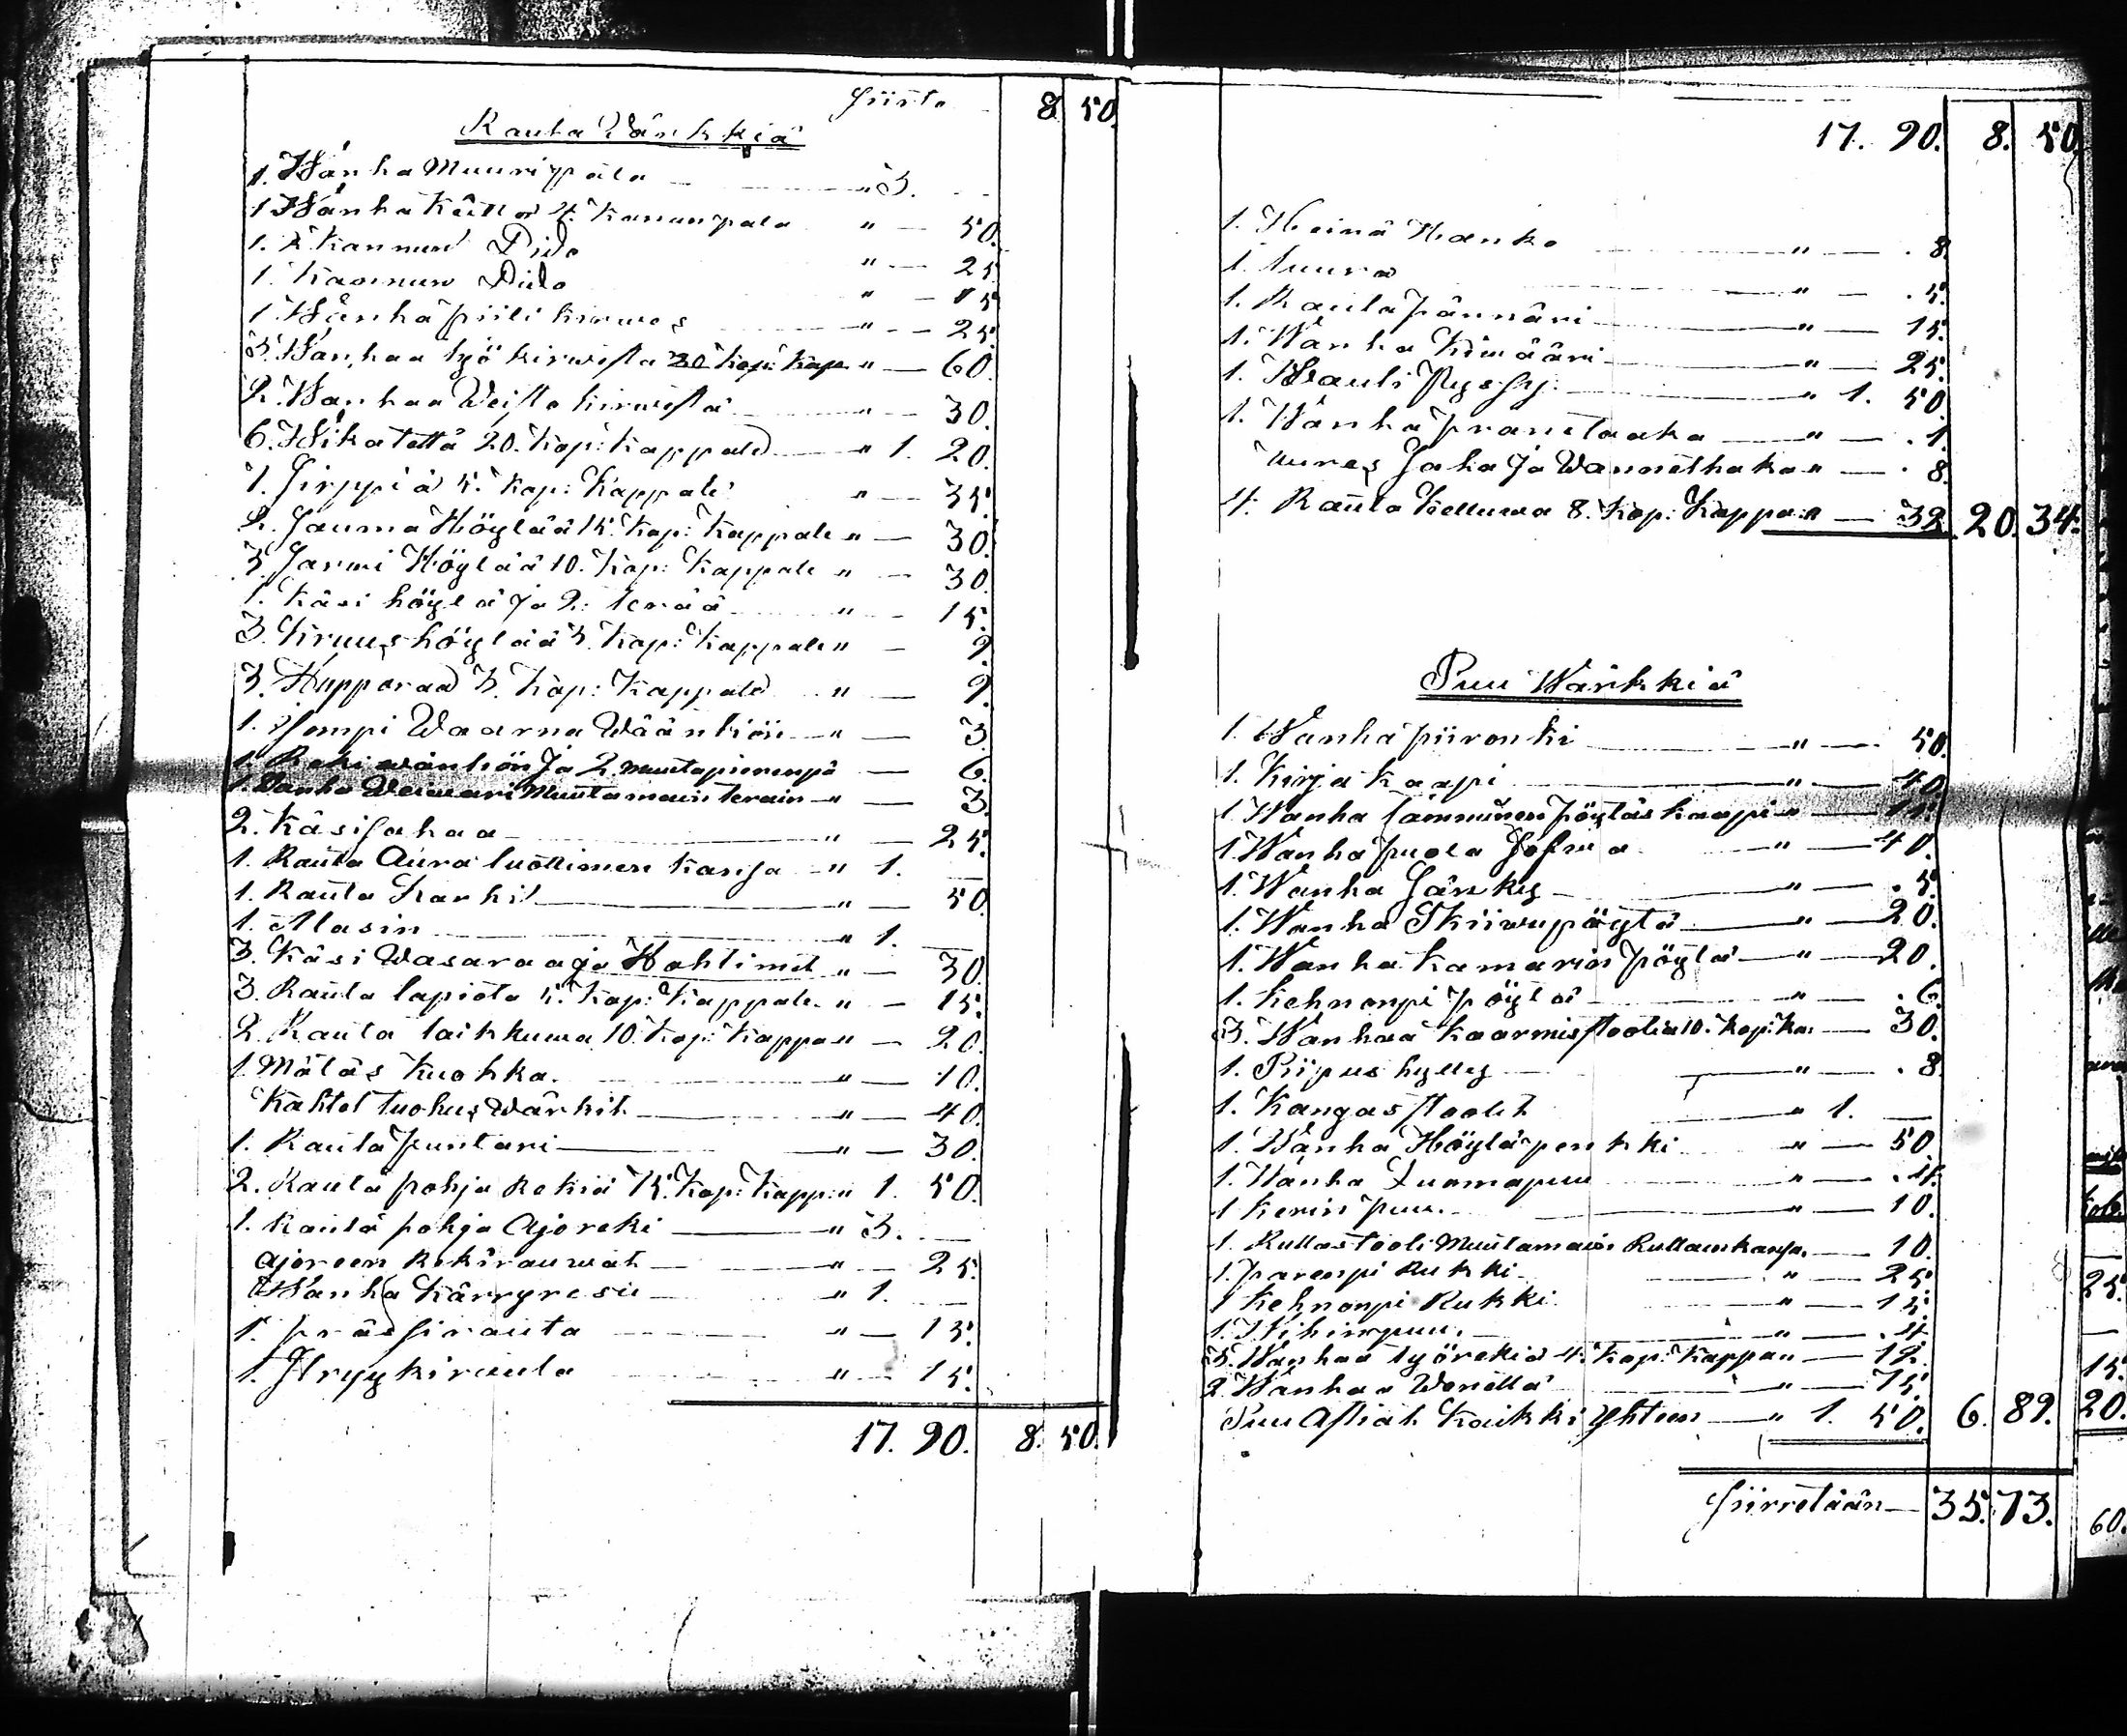 Siirto 8 50.
Rauta Wärkkiä
1. Wanha Muuripata " 3. —
1 Wanha Kattila 4. Kannunpata " — 50.
1. 2 Kannun Dido " — 25
1. Kannun Dido " — 15
1 Wanha piili kirwes " — 25.
3. Wanhaa työ kirwesta 20 Kop: Kap. " — 60.
2. Wanhaa Weisto kirwestä " — 30.
6. Wikatettä 20. Kop: Kappale " 1. 20.
7. Sirppiä 5. Kop: Kappale " — 35.
2. Sauma Höylää 15. Kop: Kappale " — 30.
3 Sarmi Höylää 10. Kop: Kappale " — 30
1. Käsi höylä Ja 2: terää " — 15.
3. Kruus höylää 3. Kop: Kappale " — 9
3. Kupparad 3. Kop: Kappale " — 9.
1. Sompi Waarna Wäänkiöi " — 3
1. Reki wänkön Ja 2. muuta pienenpä — 6.
1. Wanha Wewari Muutamain terain " — 3.
2. Käsi Sahaa " — 25.
1. Rauta Aura luottimen Kansa " 1. —
1. Rauta Karhi " — 50
1. Alasin " 1. —
3. Käsi Wasaraa ja Hohtimet " — 30.
3. Rauta lapiota 5. Kop: Kappale " — 15.
2. Rauta laikkuwa 10. Kop: Kappa " — 20.
1. Mätäs Kuokka. " — 10.
Kahtet tuohus Wärkit " — 40.
1. Rauta Puntari " — 30.
2. Rauta pohja Rekiä 75. Kop: Kapp: " 1. 50.
1. Rauta pohja Ajoreki " 3. —
Ajoreen Rekirauwat " — 25.
Wanha Kärryresu " 1. —
1. prässirauta " — 15.
1. Stryykirauta " — 15.
17. 90. 8. 50.
17. 90. 8. 50.
1. Heinä Hanko " — . 8
1. tuura " — . 5.
1. Rauta Pännäri " — 15.
1. Wanha Kiwääri " — 25.
1. Hauli Pyssy " 1. 50.
1. Wanha Pranitaaka " — . 1.
Uures Saha Ja Wannethaka " — . 8.
4. Rauta Helluwa 8. Kop: Kappa: " — 32. 20. 34.
Puu Wärkkiä
1. Wanha piironki " — 50.
1. Kirja Kaapi " — 40.
1 Wanha Pöytäs Kaapi " — 15.
1. Wanha puola Sohwa " — 40.
1. Wanha Sänky " — . 5.
1. Wanha Skiiwupöytä " — 20.
1. Wanha Kamarin Pöytä " — 20.
1. Kehnonpi pöytä " — . 6.
3. Wanhaa Kaarmistoolia 10. Kop: Ka: — 30.
1. Piipus hylly " — . 8.
1. Kangas stoolit " 1. —
1. Wanha Höyläpenkki " — 50
1. Wanha Luomapuu " — . 4.
1 Kerin Puu. " — 10.
1. Rullas tooli Muutamain Rullain kansa. — 10.
1. parenpi Rukki " — 25
1 Kehnonpi Rukki " — 15.
1. Wihinpuu. " — . 4.
3. Wanhaa työrekiä 4. Kop: Kappa " — 12.
2 Wanhaa Wenettä " — 75.
Puu Astiat Kaikki Yhteen " 1. 50. 6. 89.
Siirretään — 35. 73.
25.
15.
20.
60.